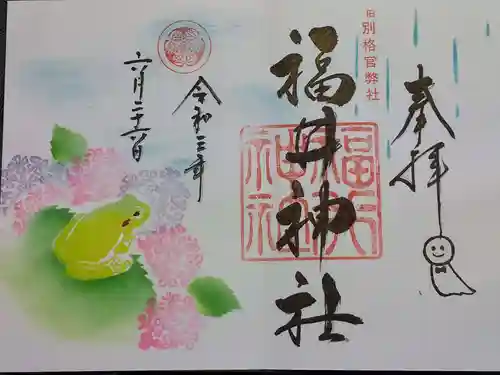 奉拝
旧別格官幣社
福井神社
令和三年
六月二十六日